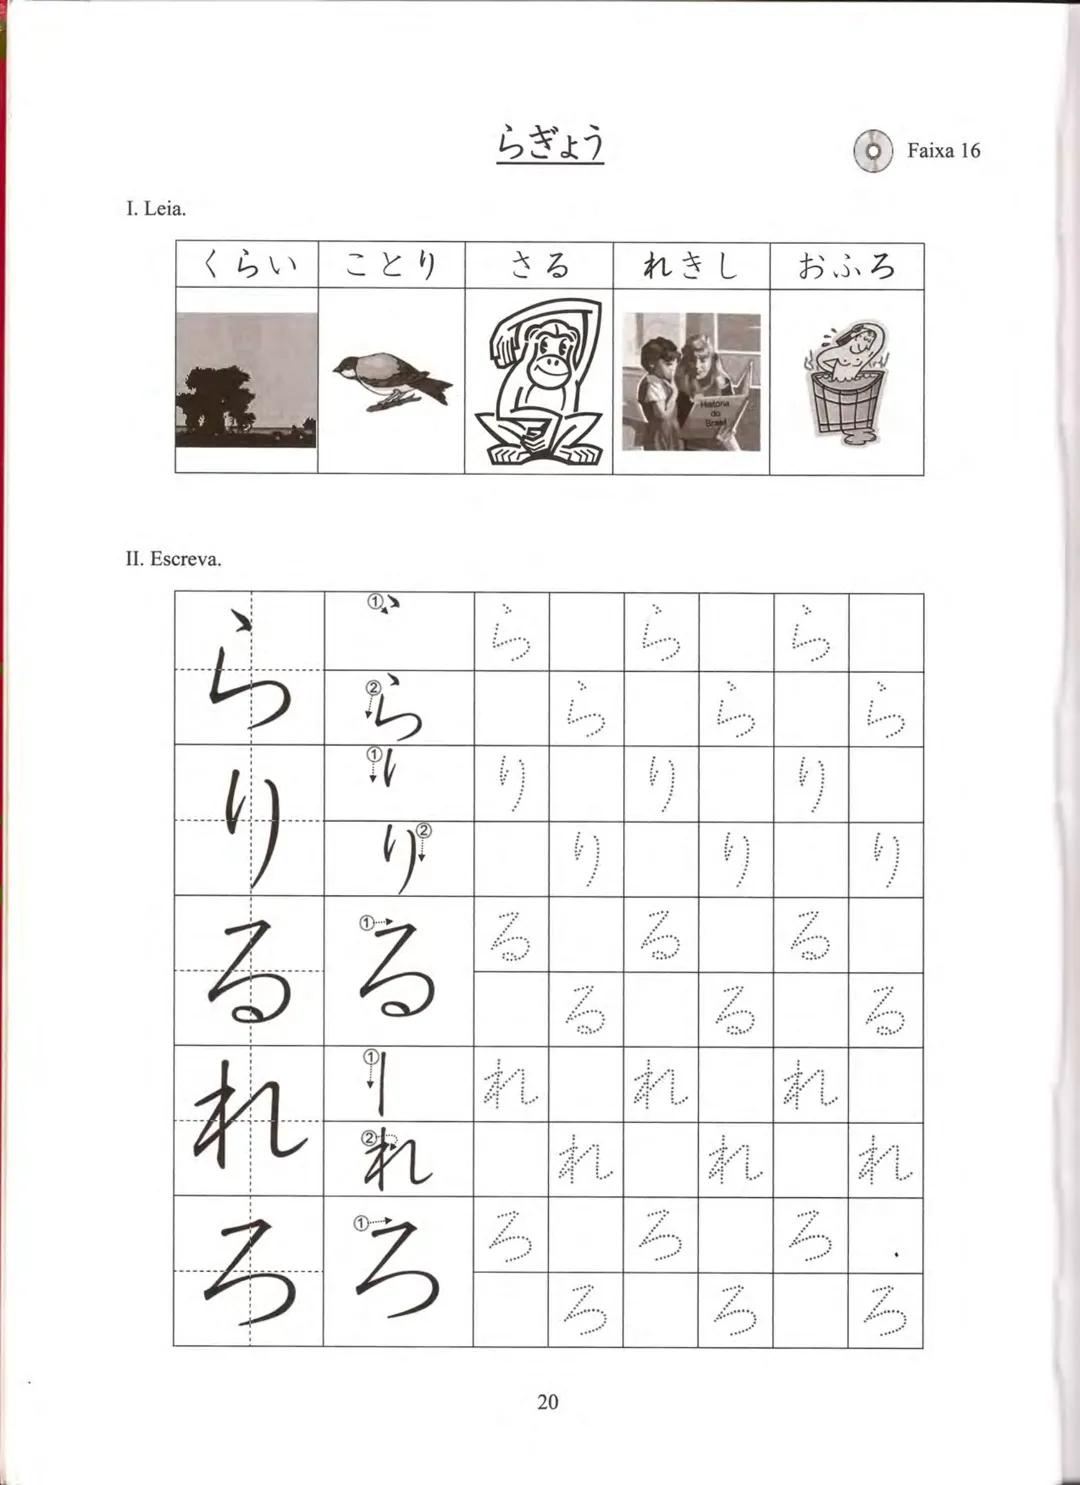 らぎょう
Faixa 16
I. Leia.
くらい ことり さる れきし おふろ
História
do
Brasil
II. Escreva.
ら ① ら ら ら
② ら ら ら ら
り ① り り り
り ② り り り
る ① る る る る
る る る
れ ① れ れ れ
② れ れ れ れ
ろ ① ろ ろ ろ ろ
ろ ろ ろ
20